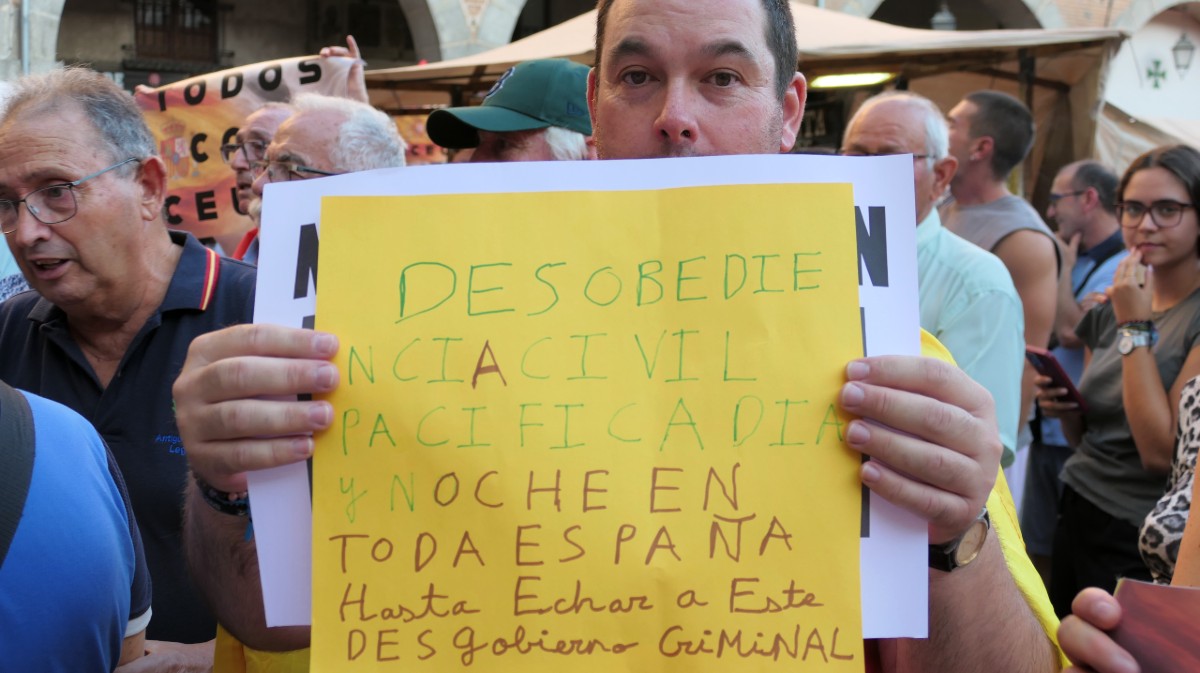 TODOS
CEU
DESOBEDIE
NCIA CIVIL
PACIFICA DIA
y NOCHE EN
TODA ESPAÑA
Hasta Echar a Este
DESgobierno CRiMiNAL